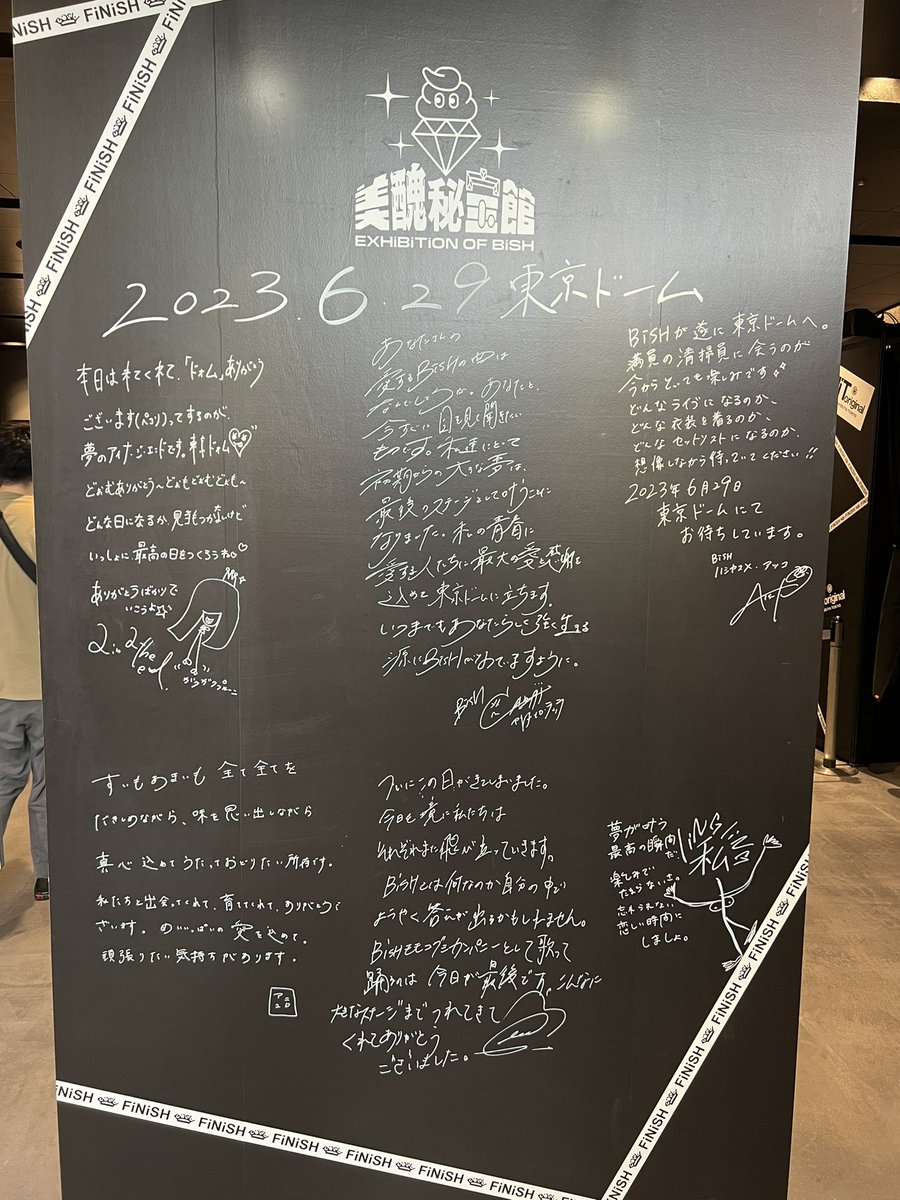 FiNiSH FiNiSH
FiNiSH FiNiSH FiNiSH FiNiSH
美醜秘宝館
EXHiBiTiON OF BiSH
2023.6.29 東京ドーム
本日は来てくれて、「ドォム」ありがとう
ございます(ペコリ)ってするのが、
夢のアイナ・ジ・エンドです。東京ドォム
どおむありがとう〜どおもどおむどおも〜
どんな日になるか、見当もつかないけど
いっしょに最高の日をつくろうね
ありがとうばかりで
いこうよ
あなたさんの
愛するBiSHの曲は
なんでしょうか。あなたと、
今すぐに目を見て聞きたい
ものです。私達にとって
初期からの大きな夢は、
最後のステージとして叶うことに
なりました。私の青春に
愛する人たちに最大の愛と感謝を
込めて東京ドームに立ちます。
いつまでもあなたらしく強く生きる
源にBiSHがなれていますように。
BiSH
BiSHが遂に東京ドームへ。
満員の清掃員に会うのが
今からとっても楽しみです
どんなライブになるのか、
どんな衣装を着るのか、
どんなセットリストになるのか、
想像しながら待っていてください!!
2023年6月29日
東京ドームにて
お待ちしています。
BiSH
ハシヤスメ・アツコ
すいもあまいも 全て全てを
だきしめながら、味を思い出しながら
真心込めてうたっておどりたい所存です。
私たちと出会ってくれて、育ててくれて、ありがとうご
ざいます。めいいっぱいの愛を込めて。
頑張りたい気持ちがあります。
アユニD
ついにこの日がきてしまいました。
今日を境に私たちは
それぞれまた飛び立っていきます。
BiSHとは何なのか自分の中で
ようやく答えが出るかもしれません。
BiSHモモコグミカンパニーとして歌って
踊るのは今日が最後です。こんなに
大きなステージまでつれてきて
くれてありがとう
ございました。
夢が叶う
最高の瞬間だ
楽しみで
たまらないさ。
忘れられない、
恋しい時間に
しましょ。
LiNGLiNG
私
iT
original
original
FiNiSH FiNiSH FiNiSH FiNiSH FiNiSH FiNiSH
FiNiSH FiNiSH FiNiSH FiNiSH FiNiSH